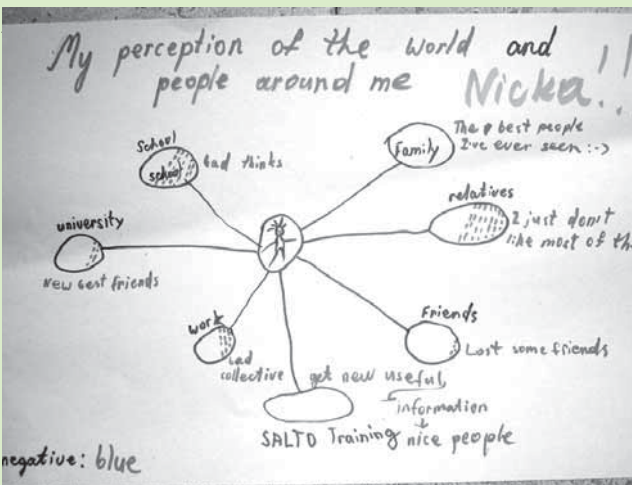 My perception of the world and
people around me Nicka!!
School
school
bad thinks
Family
The best people
I've ever seen :->
relatives
I just don't
like most of th
university
New best friends
work
bad
collective
Friends
Lost some friends
get new useful,
information
nice people
SALTO Training
negative: blue